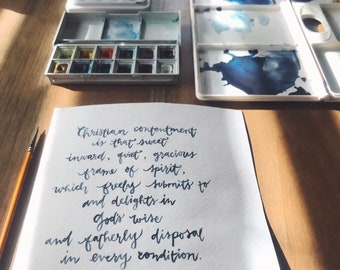 Christian contentment
is that sweet
inward, quiet, gracious
frame of spirit,
which freely submits to
and delights in
Gods wise
and fatherly disposal
in every condition.